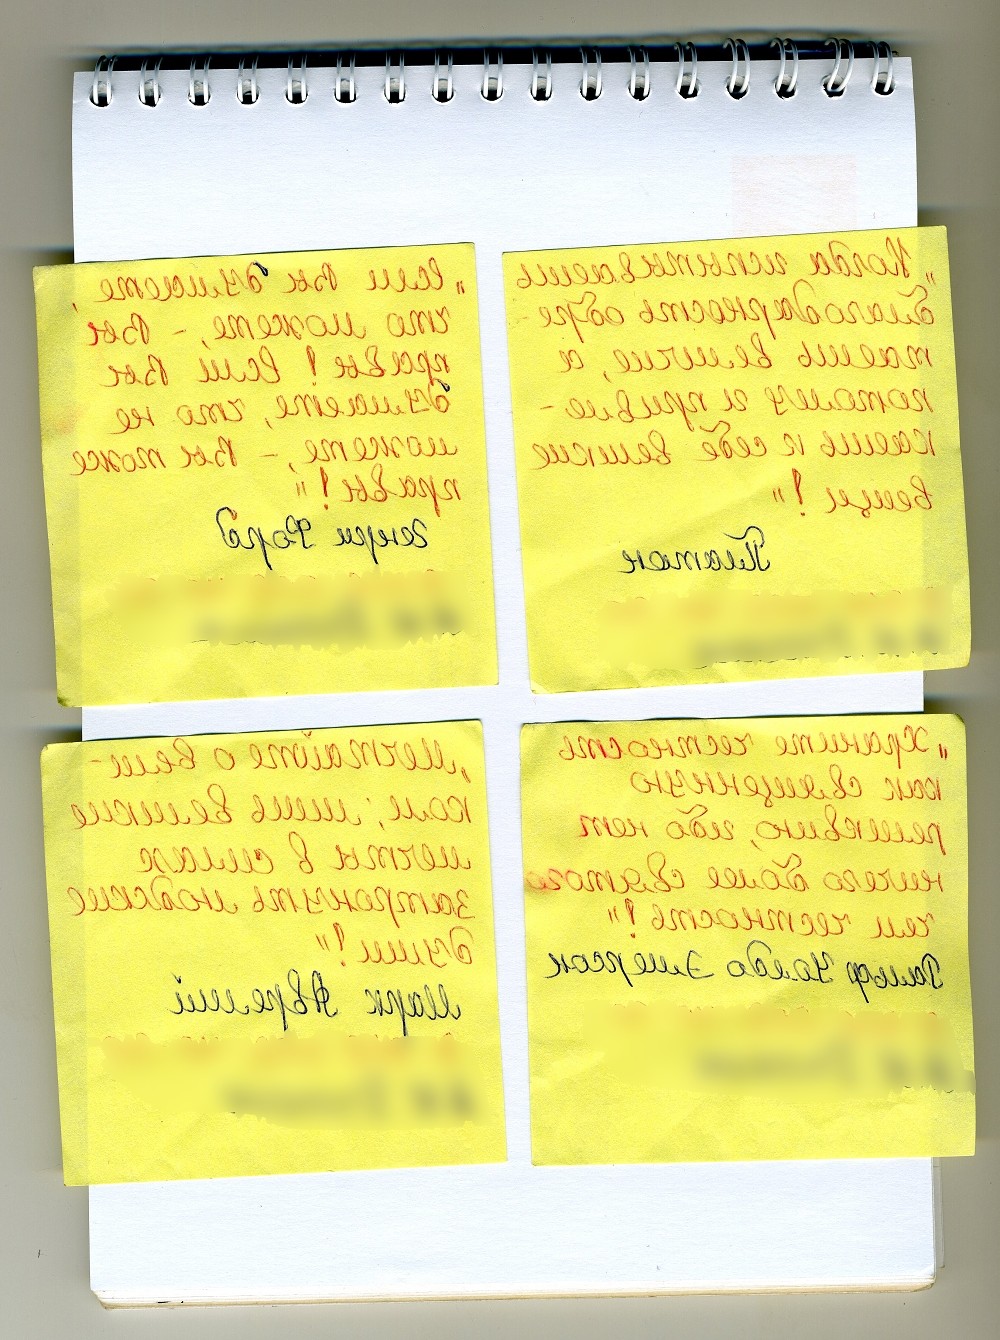 „Когда испытываешь
благодарность обре-
таешь величие, а
потому и привле-
каешь к себе великие
вещи!"
Платон
„Если Вы думаете,
что можете, - Вы
правы! Если Вы
думаете, что не
можете, - Вы тоже
правы!"
Генри Форд
„Храните честность
как священную
реликвию, ибо нет
ничего более святого
чем честность!"
Ральф Уалдо Эмерсон
„Мечтайте о вели-
ком; лишь великие
мечты в силах
затронуть людские
души!"
Марк Аврелий